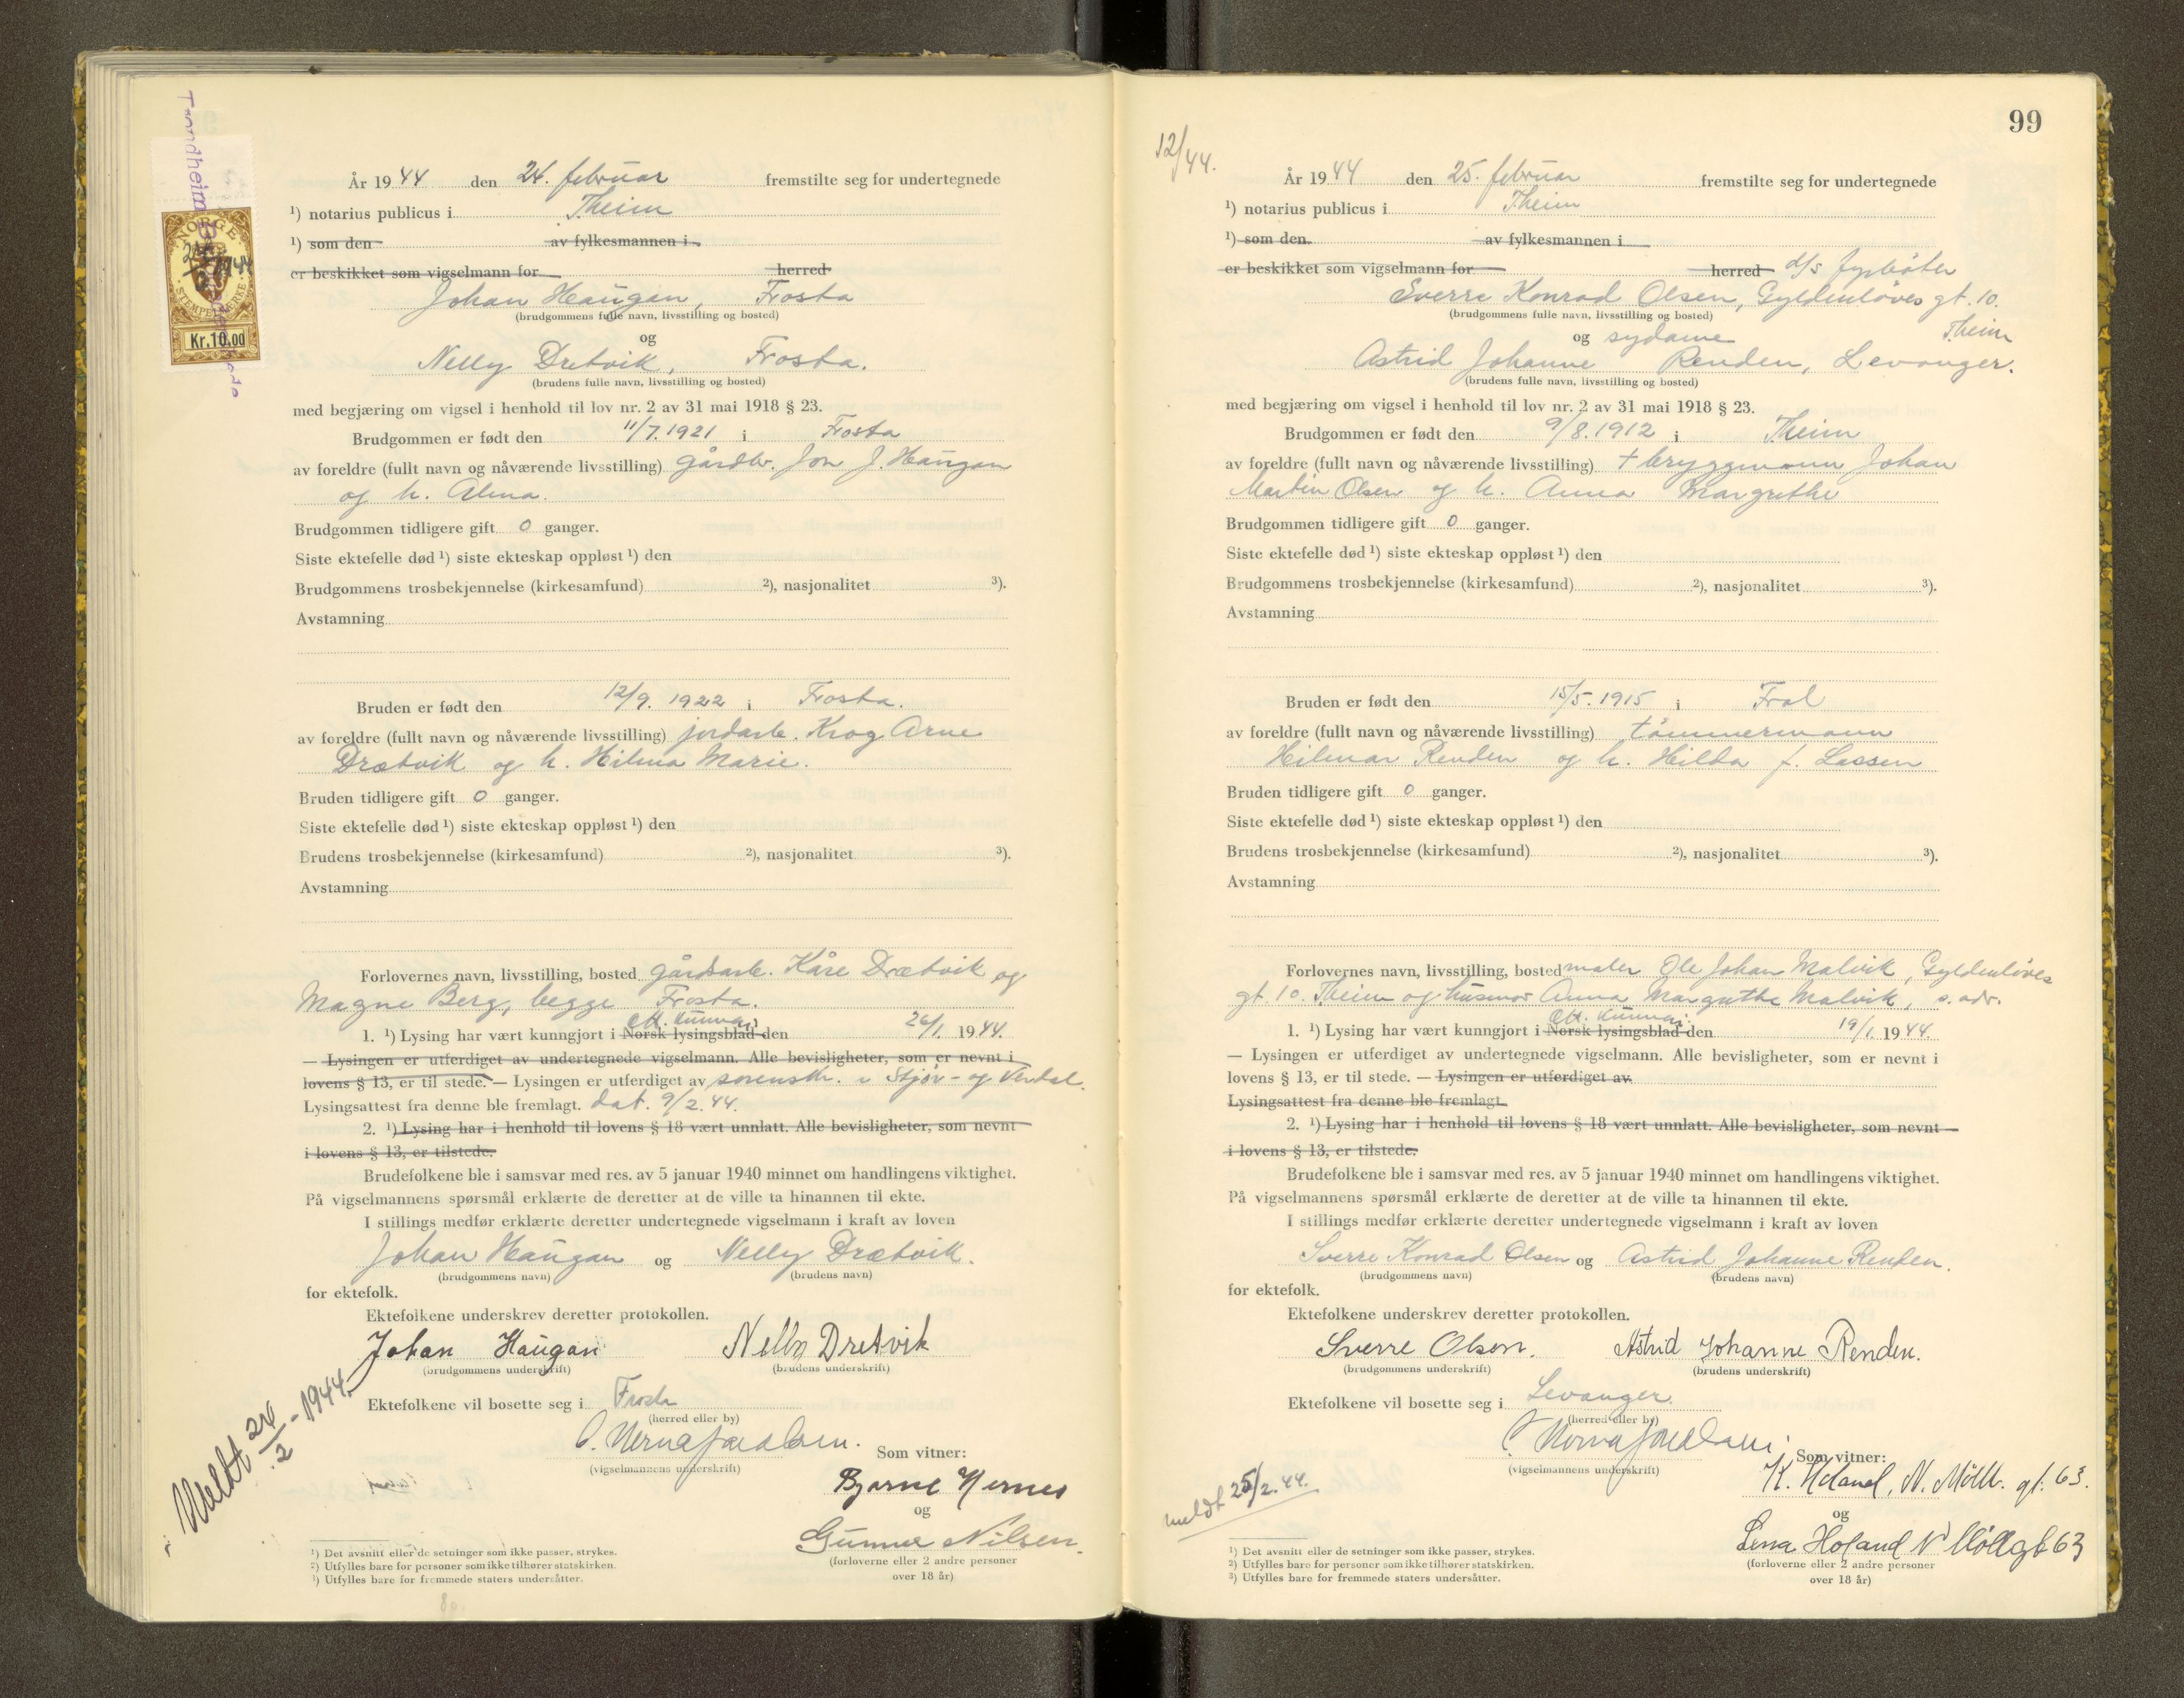 Trondheim
NORGE
24/2 1944
STEMPELMERKE
Kr.10.00
År 1944 den 24. februar fremstilte seg for undertegnede
¹) notarius publicus i Theim
¹) som den av fylkesmannen i
er beskikket som vigselmann for herred
Johan Haugan, Frosta
(brudgommens fulle navn, livsstilling og bosted)
og
Nelly Dretvik, Frosta.
(brudens fulle navn, livsstilling og bosted)
med begjæring om vigsel i henhold til lov nr. 2 av 31 mai 1918 § 23.
Brudgommen er født den 11/7.1921 i Frosta
av foreldre (fullt navn og nåværende livsstilling) gårdbr. Jon J. Haugan
og h. Alma.
Brudgommen tidligere gift 0 ganger.
Siste ektefelle død ¹) siste ekteskap oppløst ¹) den
Brudgommens trosbekjennelse (kirkesamfund) ²), nasjonalitet ³).
Avstamning
Bruden er født den 12/9. 1922 i Frosta.
av foreldre (fullt navn og nåværende livsstilling) jordarb. Krog Arne
Drætvik og h. Hilma Marie.
Bruden tidligere gift 0 ganger.
Siste ektefelle død ¹) siste ekteskap oppløst ¹) den
Brudens trosbekjennelse (kirkesamfund) ²), nasjonalitet ³).
Avstamning
Forlovernes navn, livsstilling, bosted gårdsarb. Kåre Drætvik og
Magne Berg, begge Frosta.
off. kunngj.
1. ¹) Lysing har vært kunngjort i Norsk lysingsblad den 26/1. 1944.
— Lysingen er utferdiget av undertegnede vigselmann. Alle bevisligheter, som er nevnt i
lovens § 13, er til stede. — Lysingen er utferdiget av sorenskr. i Stjør- og Verdal.
Lysingsattest fra denne ble fremlagt. dat. 9/2.44.
2. ¹) Lysing har i henhold til lovens § 18 vært unnlatt. Alle bevisligheter, som nevnt
i lovens § 13, er tilstede.
Brudefolkene ble i samsvar med res. av 5 januar 1940 minnet om handlingens viktighet.
På vigselmannens spørsmål erklærte de deretter at de ville ta hinannen til ekte.
I stillings medfør erklærte deretter undertegnede vigselmann i kraft av loven
Johan Haugan og Nelly Drætvik.
(brudgommens navn) (brudens navn)
for ektefolk.
Ektefolkene underskrev deretter protokollen.
Johan Haugan Nelly Dretvik
(brudgommens underskrift) (brudens underskrift)
Ektefolkene vil bosette seg i Frosta
(herred eller by)
(vigselmannens underskrift)
Som vitner:
Bjarne Hernes
og
Gunnar Nilsen.
(forloverne eller 2 andre personer
over 18 år)
Meldt 24/2 - 1944.
¹) Det avsnitt eller de setninger som ikke passer, strykes.
²) Utfylles bare for personer som ikke tilhører statskirken.
³) Utfylles bare for fremmede staters undersåtter.
99
12/44.
År 1944 den 25. februar fremstilte seg for undertegnede
¹) notarius publicus i Theim
¹) som den av fylkesmannen i
er beskikket som vigselmann for herred d/s fyrbøter
Sverre Konrad Olsen, Gyldenløves gt. 10.
(brudgommens fulle navn, livsstilling og bosted) Theim
og sydame
Astrid Johanne Renden, Levanger.
(brudens fulle navn, livsstilling og bosted)
med begjæring om vigsel i henhold til lov nr. 2 av 31 mai 1918 § 23.
Brudgommen er født den 9/8.1912 i Theim
av foreldre (fullt navn og nåværende livsstilling) + bryggmann Johan
Martin Olsen og h. Anna Margrethe
Brudgommen tidligere gift 0 ganger.
Siste ektefelle død ¹) siste ekteskap oppløst ¹) den
Brudgommens trosbekjennelse (kirkesamfund) ²), nasjonalitet ³).
Avstamning
Bruden er født den 15/5.1915 i Frol
av foreldre (fullt navn og nåværende livsstilling) tømmermann
Hilmar Renden og h. Hilda f. Lassen
Bruden tidligere gift 0 ganger.
Siste ektefelle død ¹) siste ekteskap oppløst ¹) den
Brudens trosbekjennelse (kirkesamfund) ²), nasjonalitet ³).
Avstamning
Forlovernes navn, livsstilling, bosted maler Ole Johan Malvik, Gyldenløves
gt. 10. Theim og husmor Anna Margrethe Malvik, s. adr.
off. kunngj.
1. ¹) Lysing har vært kunngjort i Norsk lysingsblad den 19/1. 1944.
— Lysingen er utferdiget av undertegnede vigselmann. Alle bevisligheter, som er nevnt i
lovens § 13, er til stede. — Lysingen er utferdiget av
Lysingsattest fra denne ble fremlagt.
2. ¹) Lysing har i henhold til lovens § 18 vært unnlatt. Alle bevisligheter, som nevnt
i lovens § 13, er tilstede.
Brudefolkene ble i samsvar med res. av 5 januar 1940 minnet om handlingens viktighet.
På vigselmannens spørsmål erklærte de deretter at de ville ta hinannen til ekte.
I stillings medfør erklærte deretter undertegnede vigselmann i kraft av loven
Sverre Konrad Olsen og Astrid Johanne Renden.
(brudgommens navn) (brudens navn)
for ektefolk.
Ektefolkene underskrev deretter protokollen.
Sverre Olsen. Astrid Johanne Renden.
(brudgommens underskrift) (brudens underskrift)
Ektefolkene vil bosette seg i Levanger.
(herred eller by)
(vigselmannens underskrift)
Som vitner:
K. Holand, N. Møllb. gt. 63.
og
Lina Holand N Møllbgt 63
(forloverne eller 2 andre personer
over 18 år)
meldt 25/2.44.
¹) Det avsnitt eller de setninger som ikke passer, strykes.
²) Utfylles bare for personer som ikke tilhører statskirken.
³) Utfylles bare for fremmede staters undersåtter.